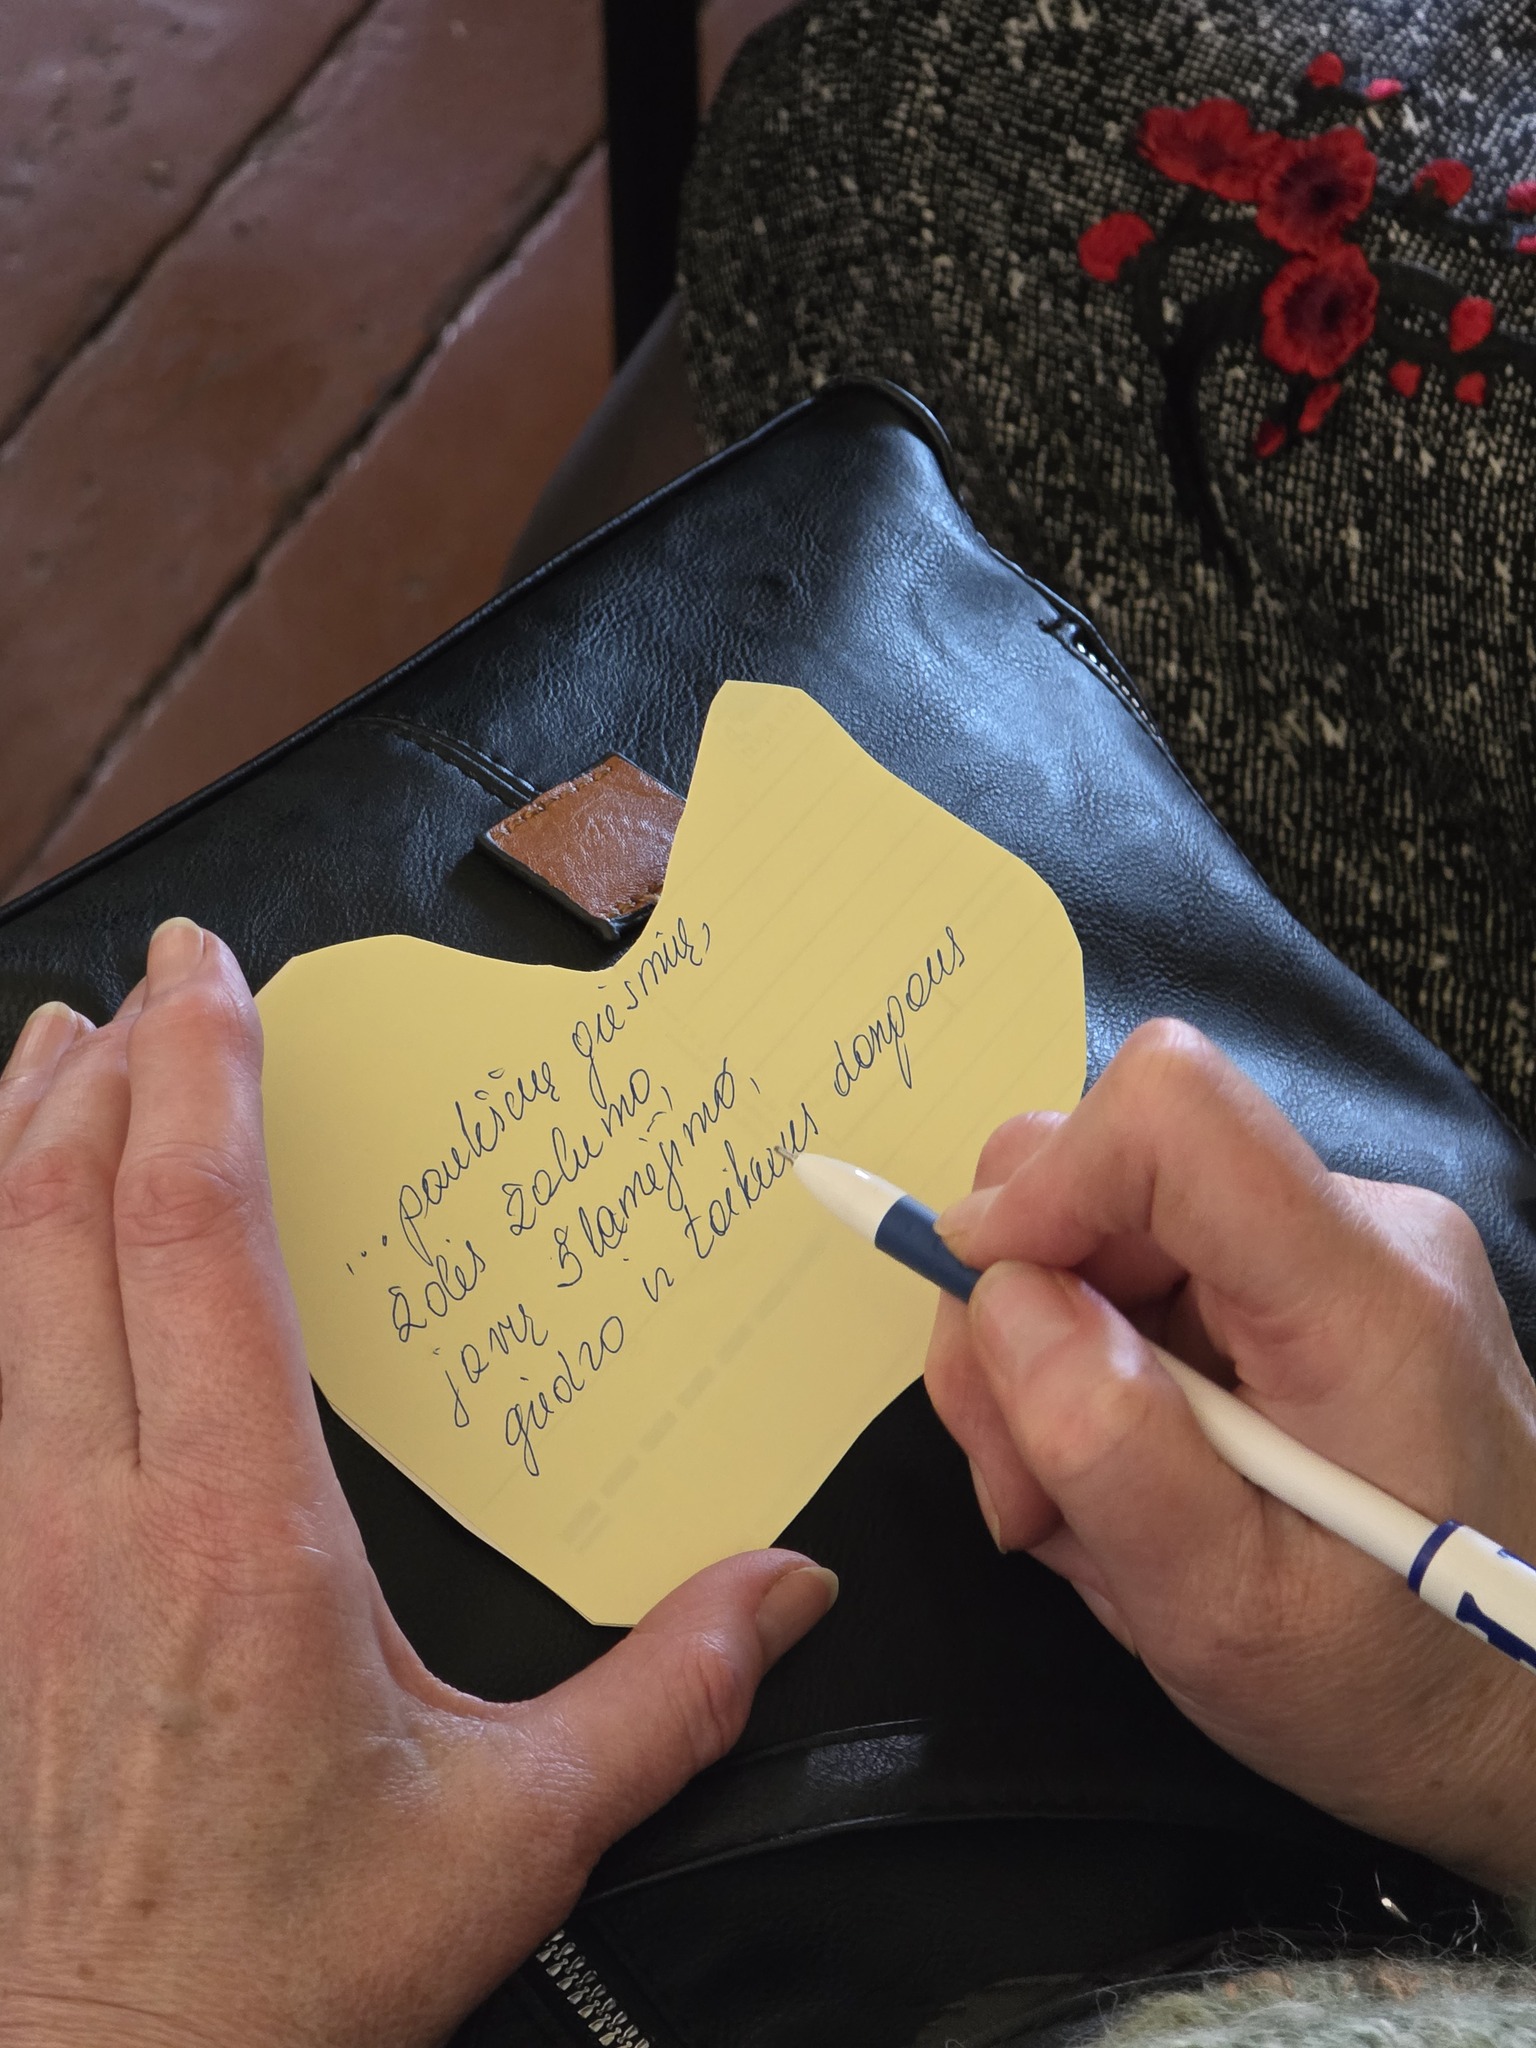 ...paukščių giesmių,
žolės žalumo,
javų šlamėjimo,
giedro ir taikaus dangaus